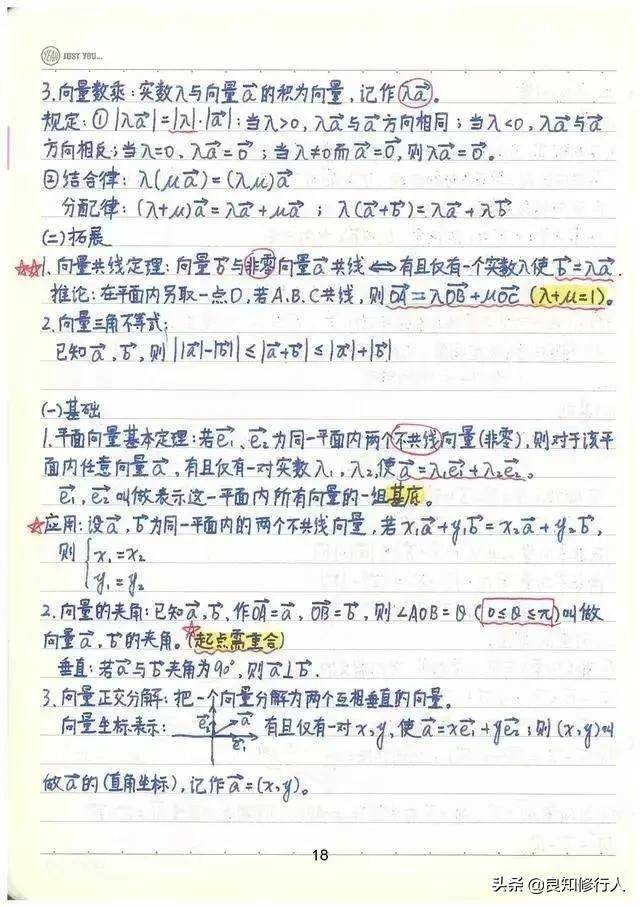 YEAH JUST YOU...
3.向量数乘:实数λ与向量a⃗的积为向量,记作λa⃗。
规定:①|λa⃗|=|λ|·|a⃗|:当λ>0,λa⃗与a⃗方向相同;当λ<0,λa⃗与a⃗
方向相反;当λ=0,λa⃗=0⃗;当λ≠0而a⃗=0⃗,则λa⃗=0⃗。
②结合律:λ(μa⃗)=(λμ)a⃗
分配律:(λ+μ)a⃗=λa⃗+μa⃗;λ(a⃗+b⃗)=λa⃗+λb⃗
(二)拓展
☆☆1.向量共线定理:向量b⃗与非零向量a⃗共线⟺有且仅有一个实数λ使b⃗=λa⃗.
推论:在平面内另取一点O,若A.B.C共线,则OA⃗=λOB⃗+μOC⃗(λ+μ=1)。
2.向量三角不等式:
已知a⃗,b⃗,则||a⃗|-|b⃗||≤|a⃗+b⃗|≤|a⃗|+|b⃗|
(一)基础
1.平面向量基本定理:若e⃗₁、e⃗₂为同一平面内两个不共线向量(非零),则对于该平
面内任意向量a⃗,有且仅有一对实数λ₁,λ₂,使a⃗=λ₁e⃗₁+λ₂e⃗₂。
e⃗₁,e⃗₂叫做表示这一平面内所有向量的一组基底。
☆应用:设a⃗,b⃗为同一平面内的两个不共线向量,若x₁a⃗+y₁b⃗=x₂a⃗+y₂b⃗,
则{x₁=x₂
y₁=y₂
2.向量的夹角:已知a⃗,b⃗,作OA⃗=a⃗,OB⃗=b⃗,则∠AOB=θ(0≤θ≤π)叫做
向量a⃗,b⃗的夹角。☆(起点需重合)
垂直:若a⃗与b⃗夹角为90°,则a⃗⊥b⃗.
3.向量正交分解:把一个向量分解为两个互相垂直的向量。
向量坐标表示: e⃗₂ a⃗ e⃗₁ 有且仅有一对x,y,使a⃗=xe⃗₁+ye⃗₂;则(x,y)叫
做a⃗的(直角坐标),记作a⃗=(x,y)。
18
头条@良知修行人